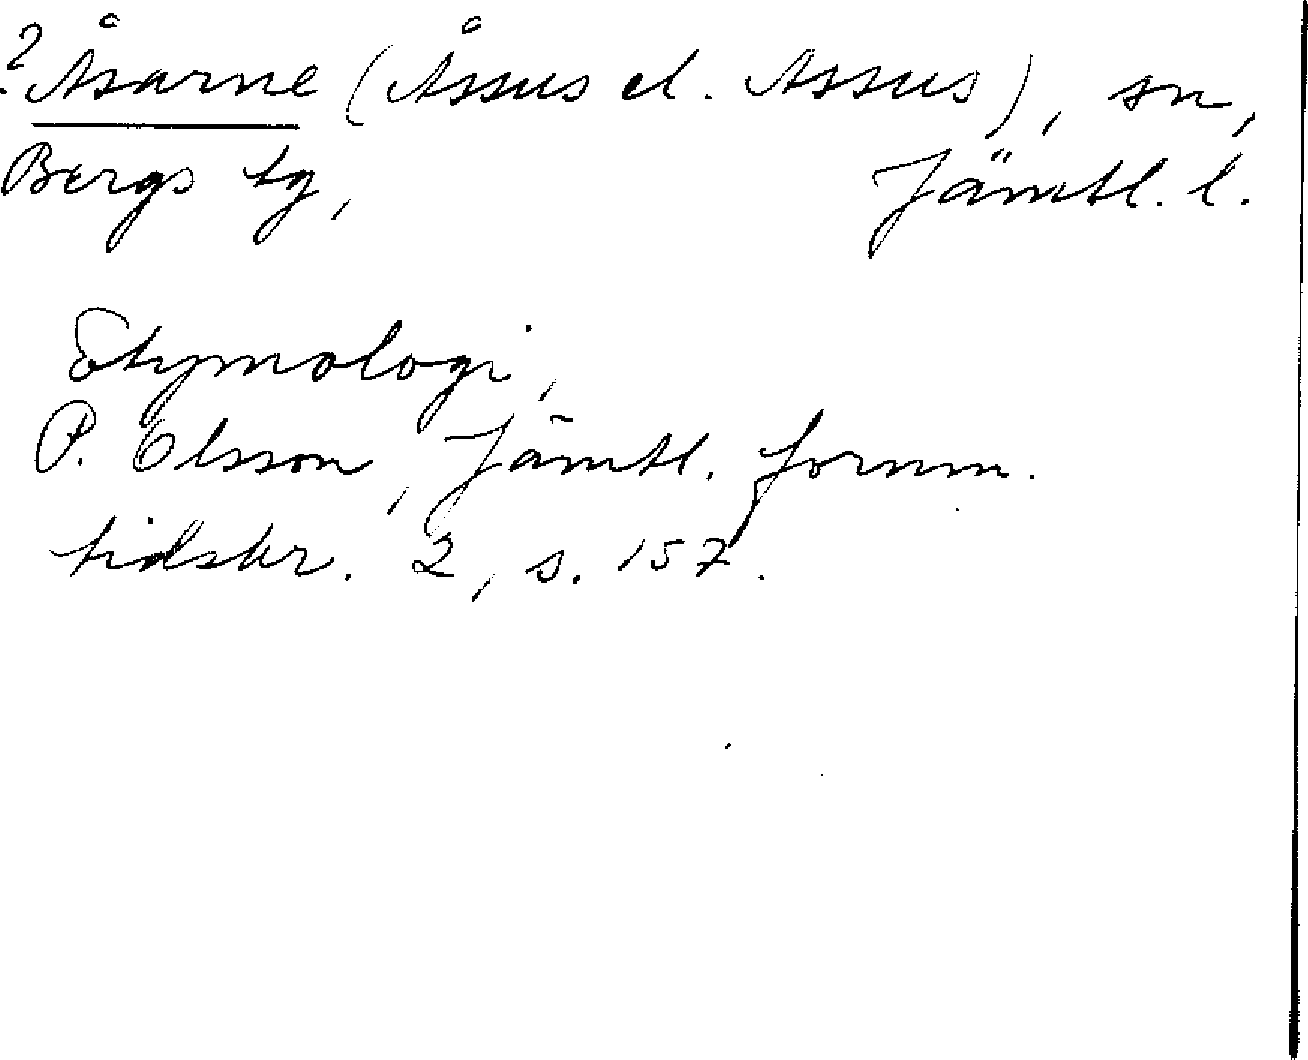 ? Åsarne (Åssus el. Assus), sn,
Bergs tg, Jämtl. l.
Etymologi,
P. Olsson, Jämtl. fornm.
tidskr. 2, s. 157.